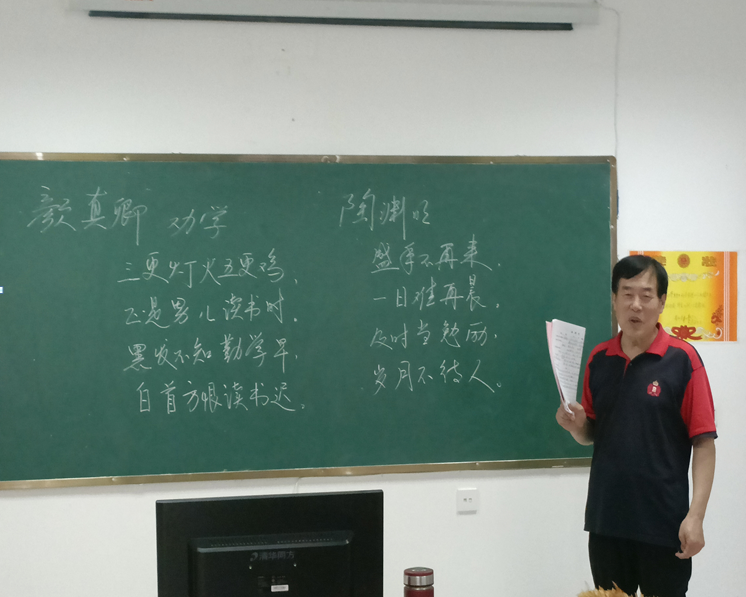 颜真卿 劝学
三更灯火五更鸡,
正是男儿读书时。
黑发不知勤学早,
白首方恨读书迟。
陶渊明
盛年不再来,
一日难再晨。
及时当勉励,
岁月不待人。
清华同方